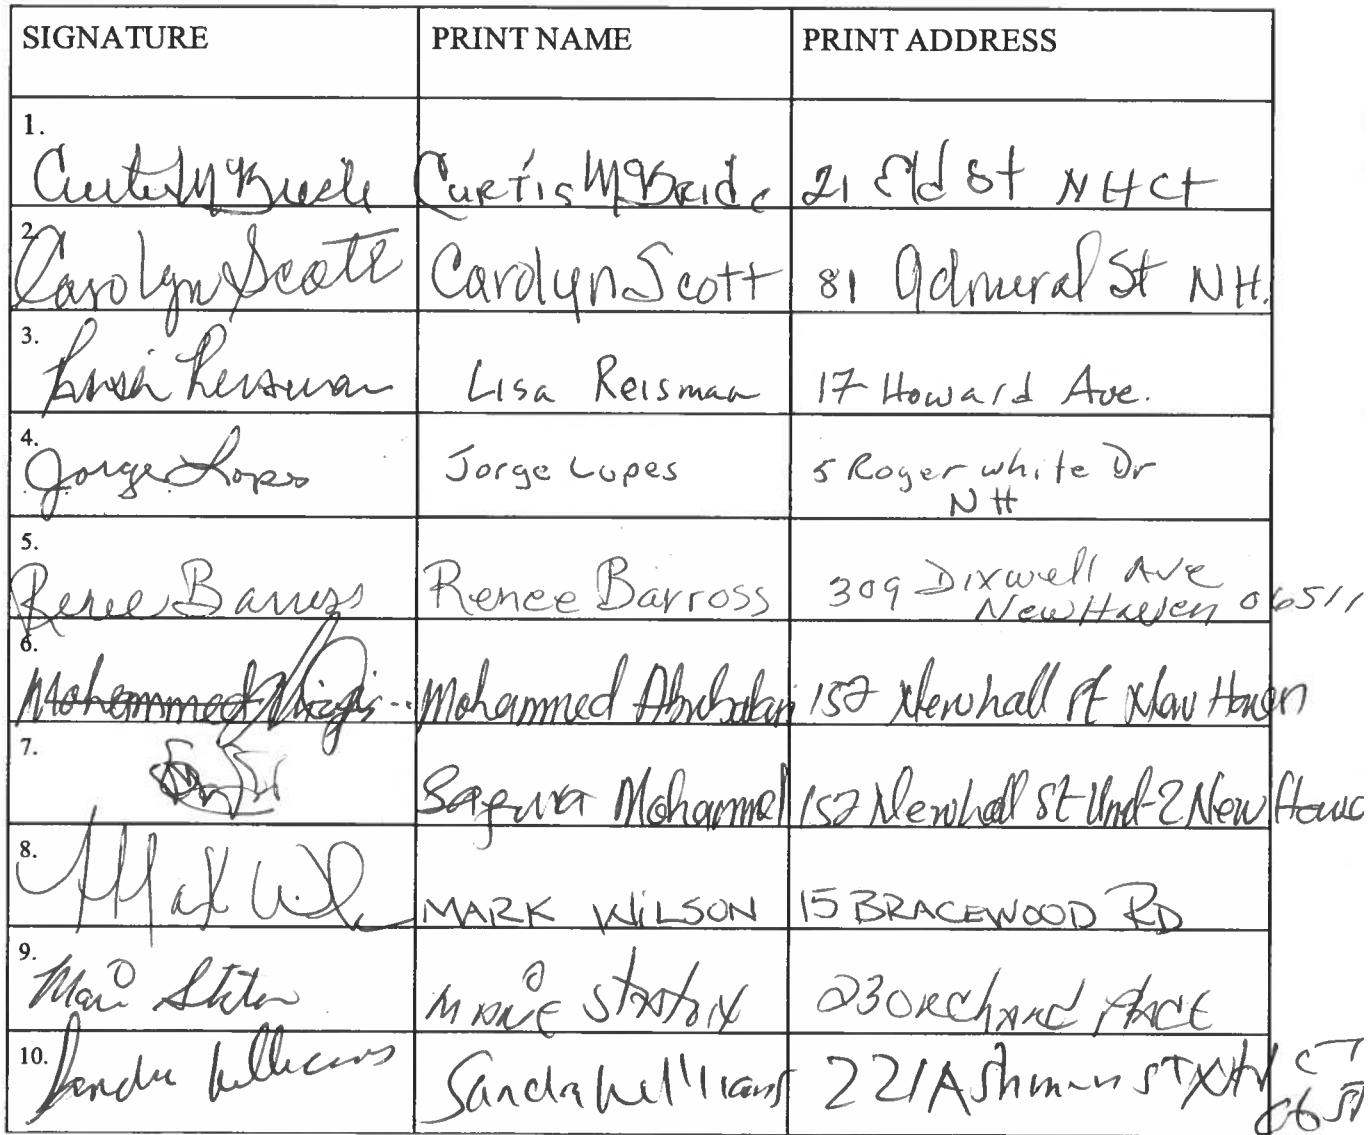 SIGNATURE PRINT NAME PRINT ADDRESS
1.
Curtis McBride Curtis McBride 21 Eld St NH Ct
2.
Carolyn Scott Carolyn Scott 81 Admiral St NH.
3.
Lisa Reisman Lisa Reisman 17 Howard Ave.
4.
Jorge Lopes Jorge Lopes 5 Roger white Dr
NH
5.
Renee Barross Renee Barross 309 Dixwell Ave
New Haven 06511
6.
Mohammed Mohammed Abubakari 157 Newhall St New Haven
7.
Mohammed 157 Newhall St Unit-2 New
8.
Mark Wilson MARK WILSON 15 BRACEWOOD RD
9.
Marie Marie 230 Orchard Place
10.
Sandra Williams Sandra Williams 221 Ashmun ST CT